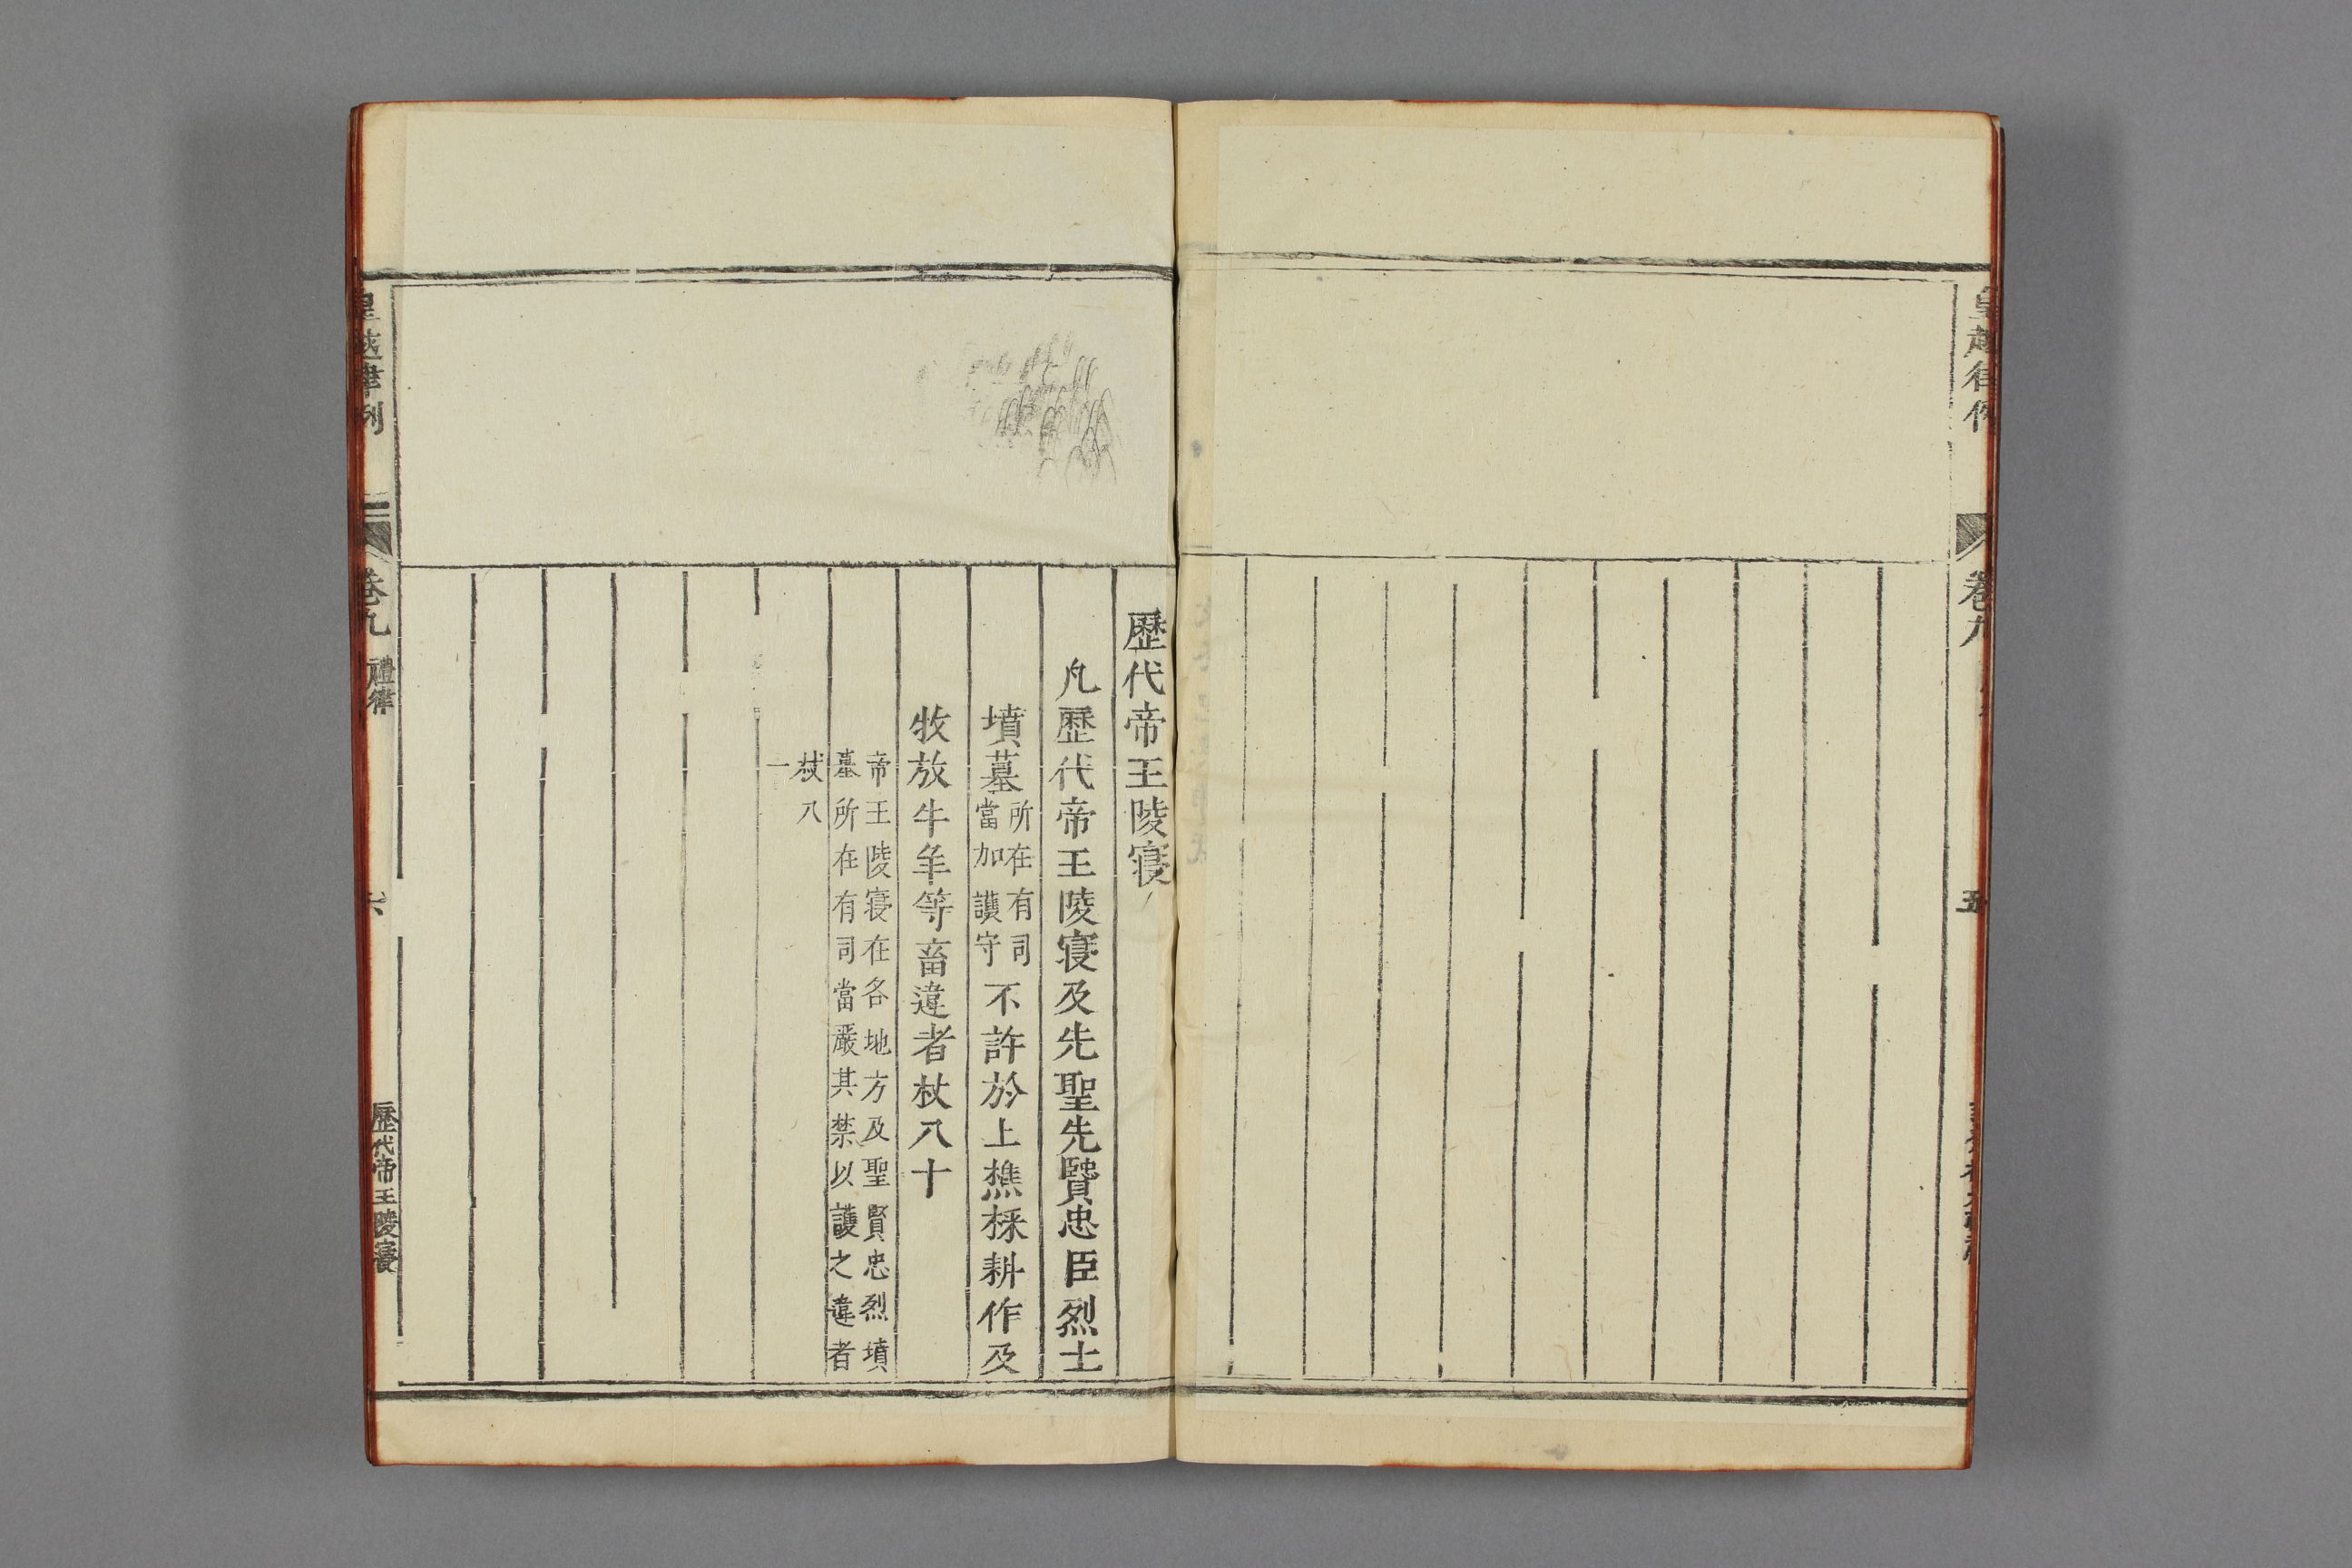 皇越律例
卷九
五
歷代帝王陵寝
凡歷代帝王陵寝及先聖先賢忠臣烈士
墳墓
所在有司
當加護守
不許於上樵採耕作及
牧放牛羊等畜違者杖八十
帝王陵寝在各地方及聖賢忠烈墳
墓所在有司當嚴其禁以護之違者
杖八
一
皇越律例
卷九
禮律
六
歷代帝王陵寝